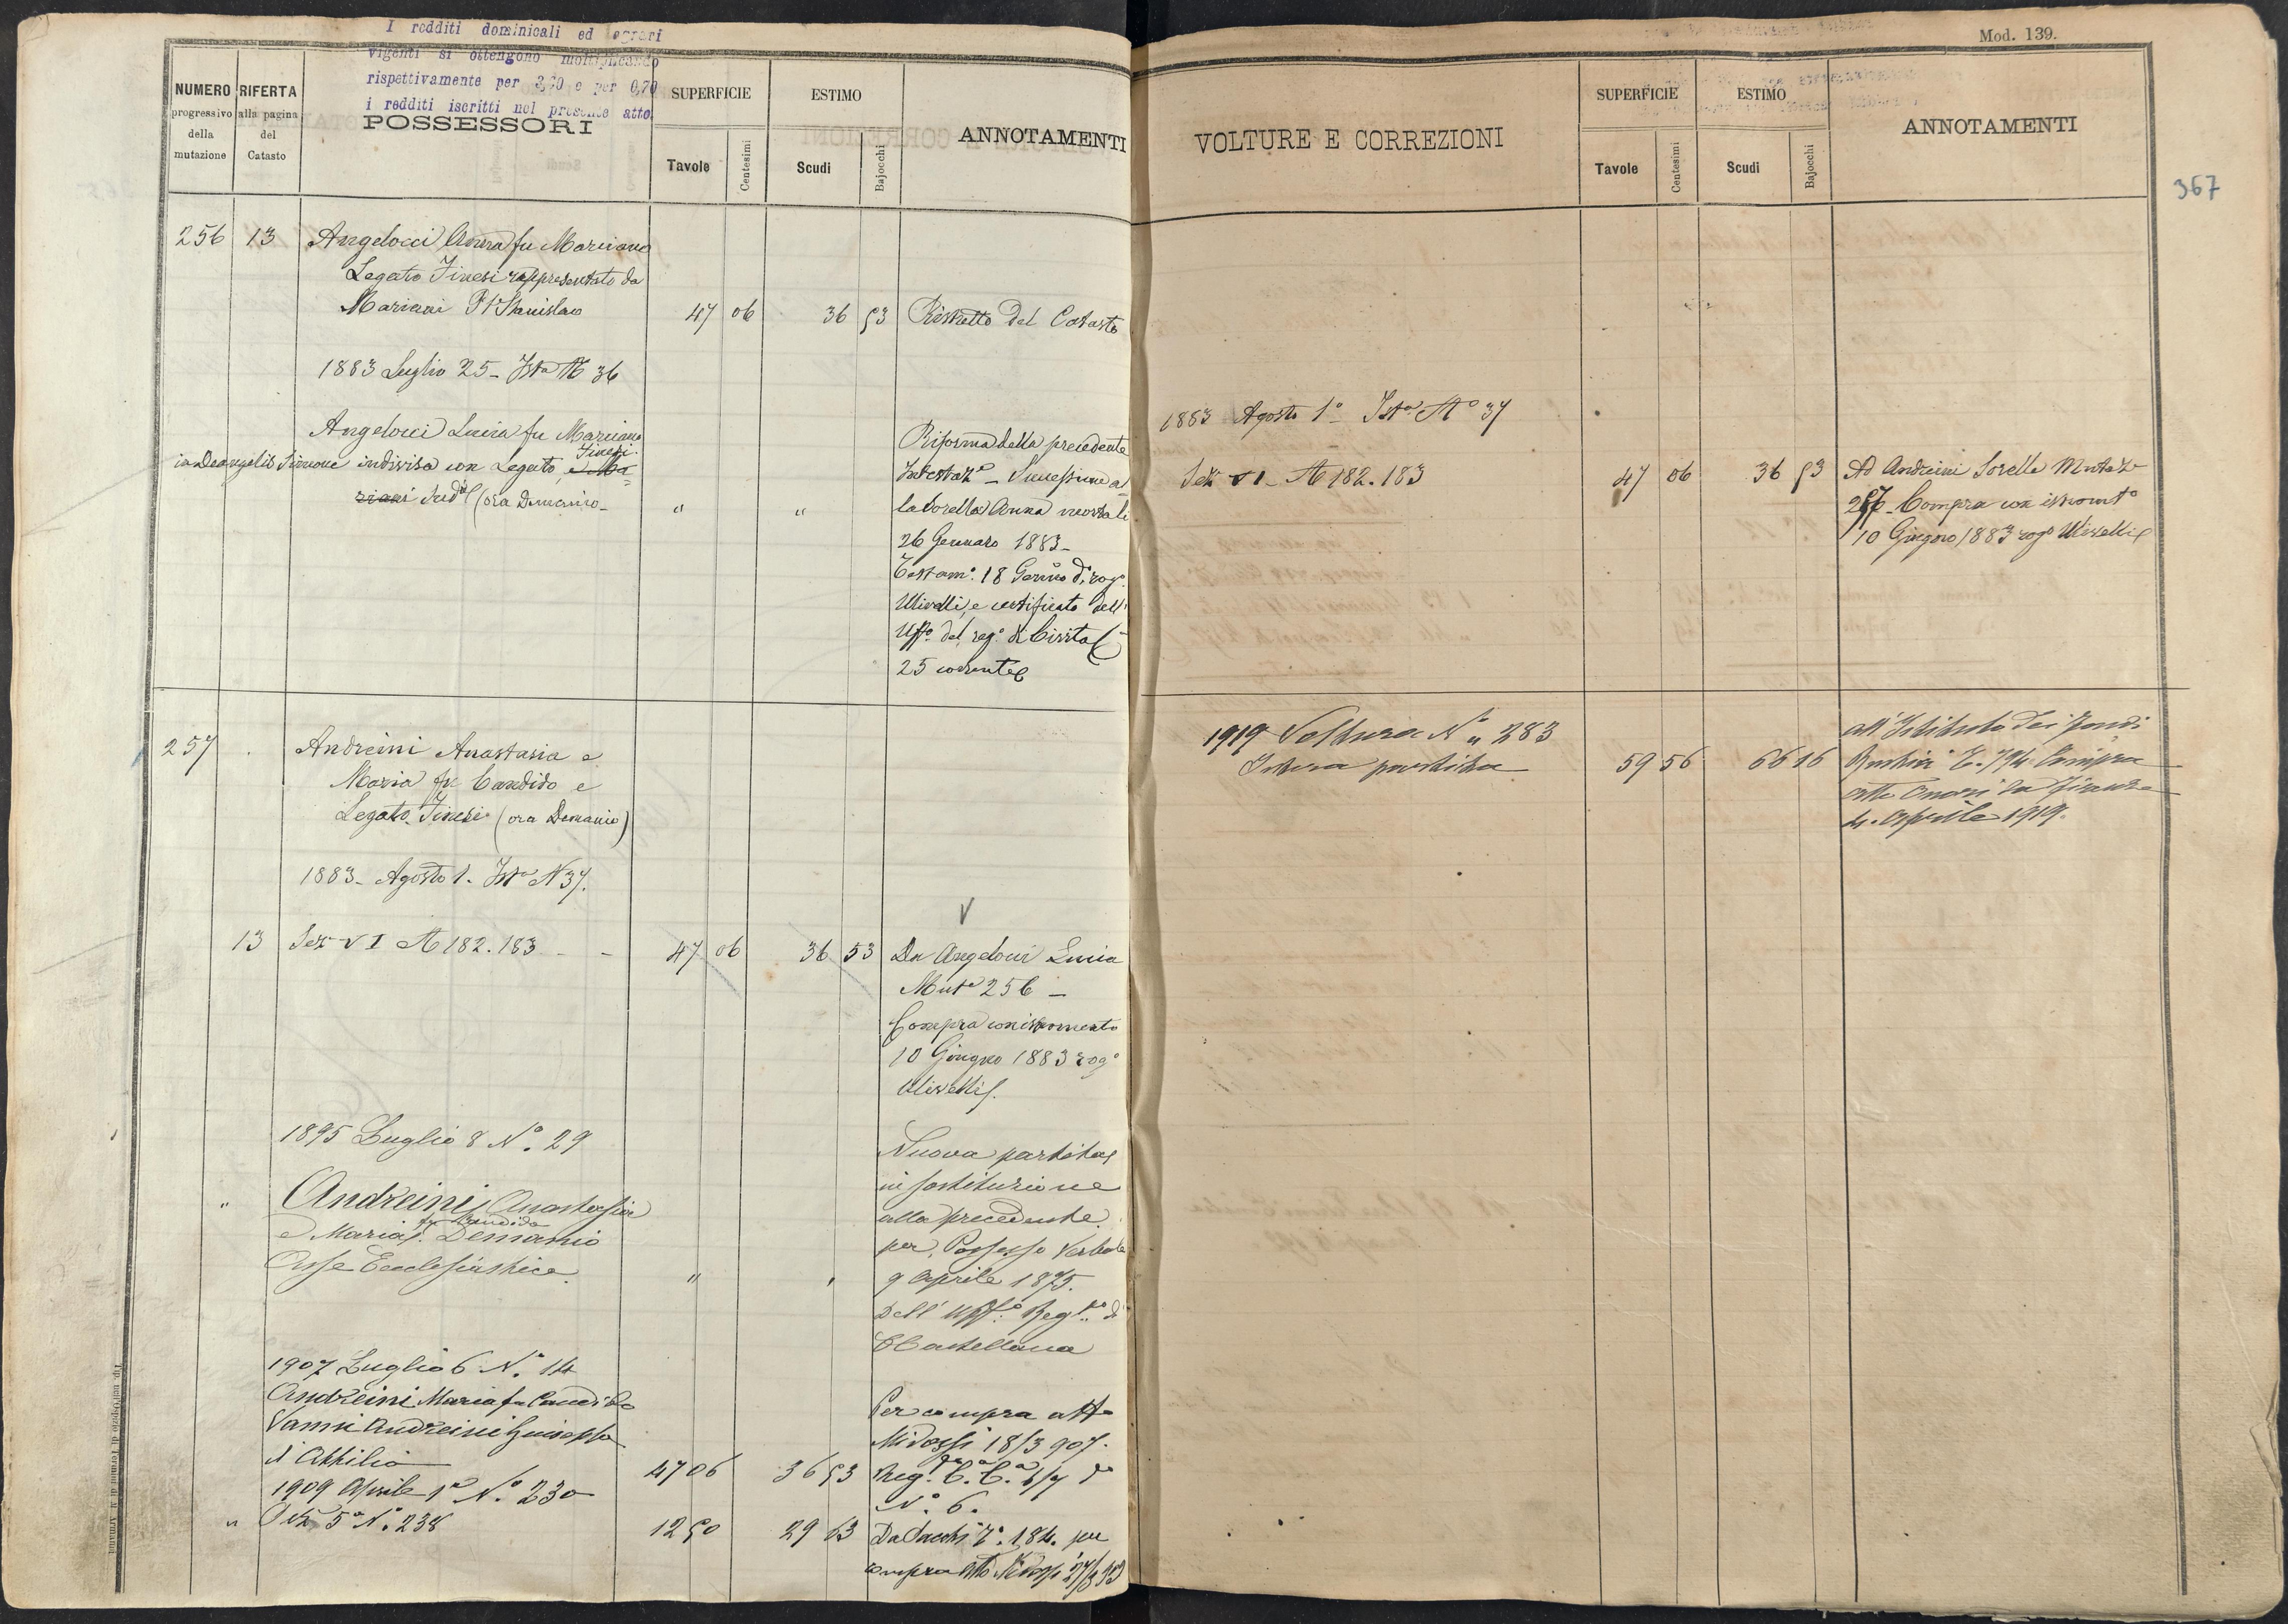 I redditi dominicali ed agrari
vigenti si ottengono moltiplicando
rispettivamente per 3,40 e per 0,70
i redditi iscritti nel presente atto.
NUMERO
progressivo
della
mutazione
RIFERTA
alla pagina
del
Catasto
POSSESSORI
SUPERFICIE
Tavole
Centesimi
ESTIMO
Scudi
Bajocchi
ANNOTAMENTI
256 13 Angelocci Anna fu Marciano
Legato Finesi rappresentato da
Mariani Stanislao
47 06 36 53 Ristretto del Catasto
1883 Luglio 25 - Ista N 36
Angelocci Lucia fu Marciano
in Deangelis Simone indivisa con Legato Finesi
(ora Demanio
" "
Riforma della precedente
Successione al
la sorella Anna morta li
26 Gennaro 1883 -
Testamo. 18 Genno do rogo
Ulivelli, e certificato dell'
Uffo. del rego. di Civita C
25 corrente
257 Andreini Anastasia e
Maria fu Candido e
Legato Finesi (ora Demanio)
1883 - Agosto 1 - Ista N 37.
13 Sez VI N 182. 183 - - 47 06 36 53
Da Angelocci Lucia
Muta 256 -
Compra con istromento
10 Giugno 1883 rogo
Ulivelli
1895 Luglio 8 No. 29
" Andreini Anastasia
e Maria fu Candido Demanio
Asse Ecclesiastico.
"
Nuova partita
in sostituzione
alla precedente
per Possesso Verbale
9 Aprile 1875.
Dell' Uffo. Regro. di
CCastellana
1907 Luglio 6 No. 14
Andreini Maria fu Candido
Vanni Andreini Giuseppa
d'Attilio
47 06 36 53
Per compra atto
Midossi 18/3 907.
Reg. C.C.
No. 6.
1909 Aprile 1a No. 230
" Sez 5a No. 238 12 50 29 63
Da Sacchi To. 184. per
compra atto Midossi
Mod. 139.
367
VOLTURE E CORREZIONI
SUPERFICIE
Tavole
Centesimi
ESTIMO
Scudi
Bajocchi
ANNOTAMENTI
1883 Agosto 1o - Ista No 37
Sez VI - N 182. 183 47 06 36 53
Ad Andreini Sorelle Mutaz
257 - Compra con istromto
10 Giugno 1883 rogo Ulivelli
1919 Voltura No 283
Intera partita 59 56 66 16
all'Istituto dei Fondi
Rustici T. 794 Compra
4. Aprile 1919.